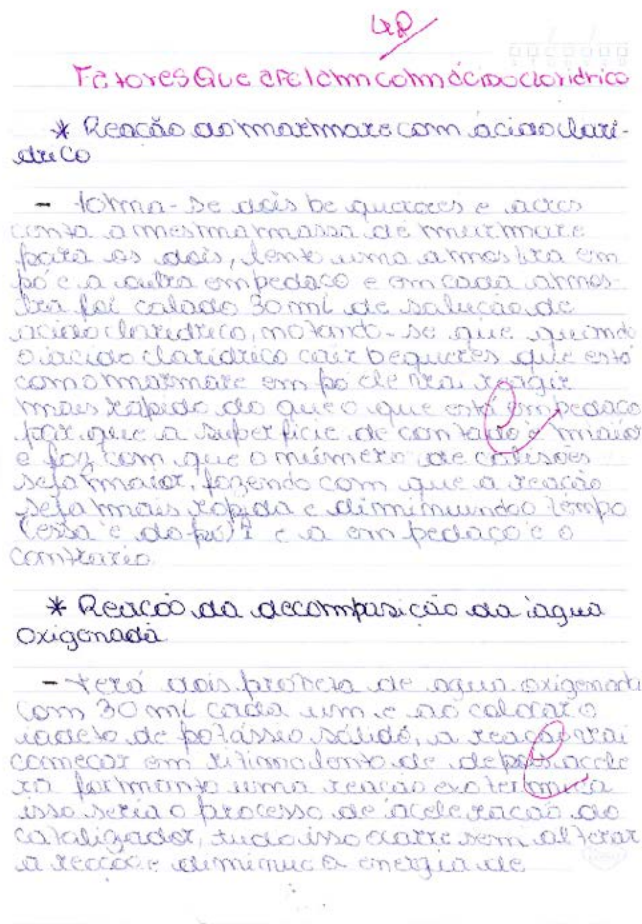 Fatores Que afetam com ácido cloridrico
* Reação do marmore com ácido clori-
drico
- toma-se dois bequeres e acres
centa a mesma massa de marmore
para os dois, tento uma amostra em
pó e a outra em pedaço e em cada amos-
tra foi colado 30 ml de solução de
acido cloridrico, notando-se que quando
o acido cloridrico cair bequeres que está
com o marmore em po ele vai reagir
mais rápido do que o que está em pedaço
por que a superficie de contado é maior
e faz com que o número de colisões
seja maior, fazendo com que a reação
seja mais rápida e diminuindo tempo
(essa é do pó) e a em pedaço é o
contrario
* Reacão da decomposicão da água
oxigenada
- terá dois proveta de agua oxigenada
com 30 ml cada um e ao colocar o
iodeto de potássio sólido, a reação vai
começar em ritimo lento de depois acele
ra formanto uma reação exotermica
isso seria o processo de aceleração do
catalizador, tudo isso ocorre sem alterar
a reação e diminue a energia de